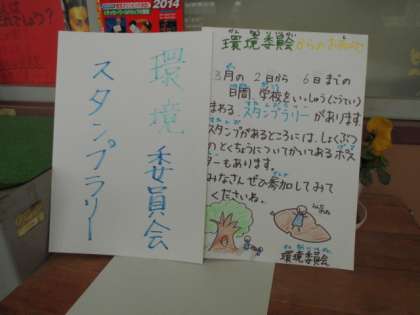 2014
環境委員会
スタンプラリー
環境委員会からのお知らせ
3月の2日から6日までの
日間、学校をいっしゅう(こうてい)
まわる、スタンプラリーがあります。
スタンプがあるところには、しょくぶつ
のとくちょうについてかいてあるポス
ターもあります。
みなさんぜひ参加してみて
くださいね。
環境委員会